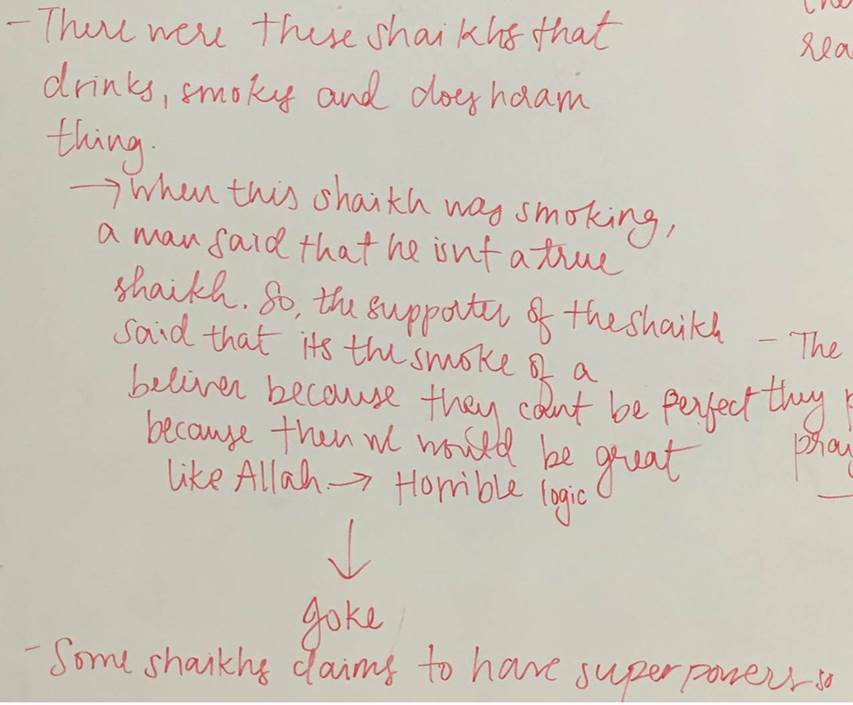 - There were these shaikhs that
drinks, smokes and does haram
thing.
→ When this shaikh was smoking,
a man said that he isnt a true
shaikh. So, the supporter of the shaikh
said that its the smoke of a
beliver because they cant be perfect
because then we would be great
like Allah → Horrible logic
↓
Joke
- Some shaikhs claims to have superpowers so
rea
- The
they
pray